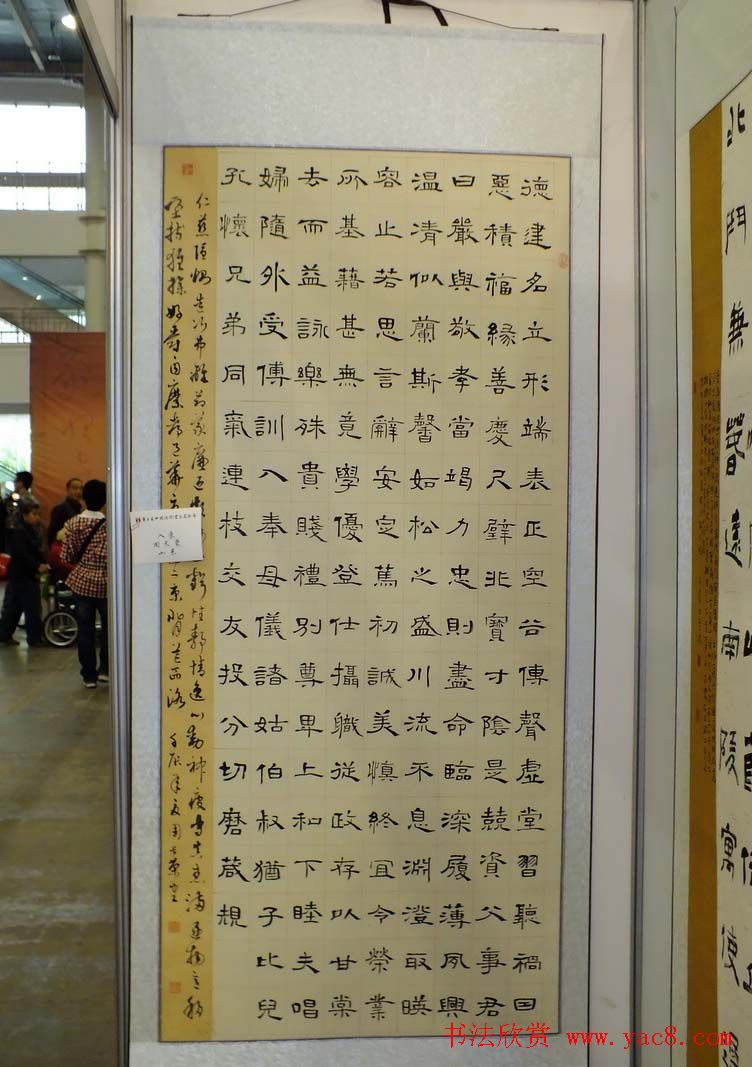 德建名立形端表正空谷傳聲虛堂習聽禍因
惡積福緣善慶尺璧非寶寸陰是競資父事君
曰嚴與敬孝當竭力忠則盡命臨深履薄夙興
溫凊似蘭斯馨如松之盛川流不息淵澄取暎
容止若思言辭安定篤初誠美慎終宜令榮業
所基藉甚無竟學優登仕攝職從政存以甘棠
去而益詠樂殊貴賤禮別尊卑上和下睦夫唱
婦隨外受傅訓入奉母儀諸姑伯叔猶子比兒
孔懷兄弟同氣連枝交友投分切磨箴規
仁慈隱惻造次弗離節義廉退顛虧性靜情逸心動神疲守真志滿逐物意移
堅持雅操好爵自縻都邑華二京背芒面洛 壬辰年夏周
入展
山东
南陵寓使
书法欣赏 www.yac8.com